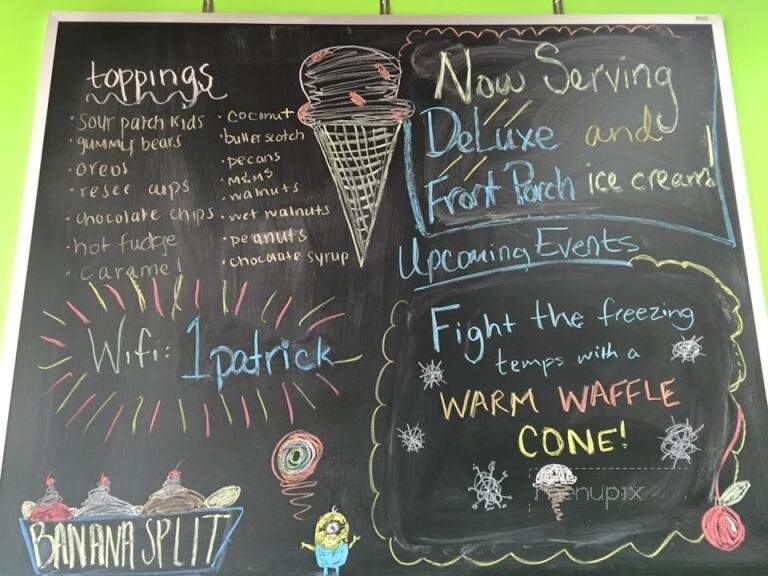 toppings
• sour patch kids
• gummy bears
• oreos
• resee cups
• chocolate chips
• hot fudge
• caramel
• coconut
• butterscotch
• pecans
• M&MS
• walnuts
• wet walnuts
• peanuts
• chocolate syrup
Now Serving
DeLuxe and
Front Porch ice cream!
Upcoming Events
Fight the freezing
temps with a
WARM WAFFLE
CONE!
Wifi: 1patrick
BANANA SPLIT
menupix